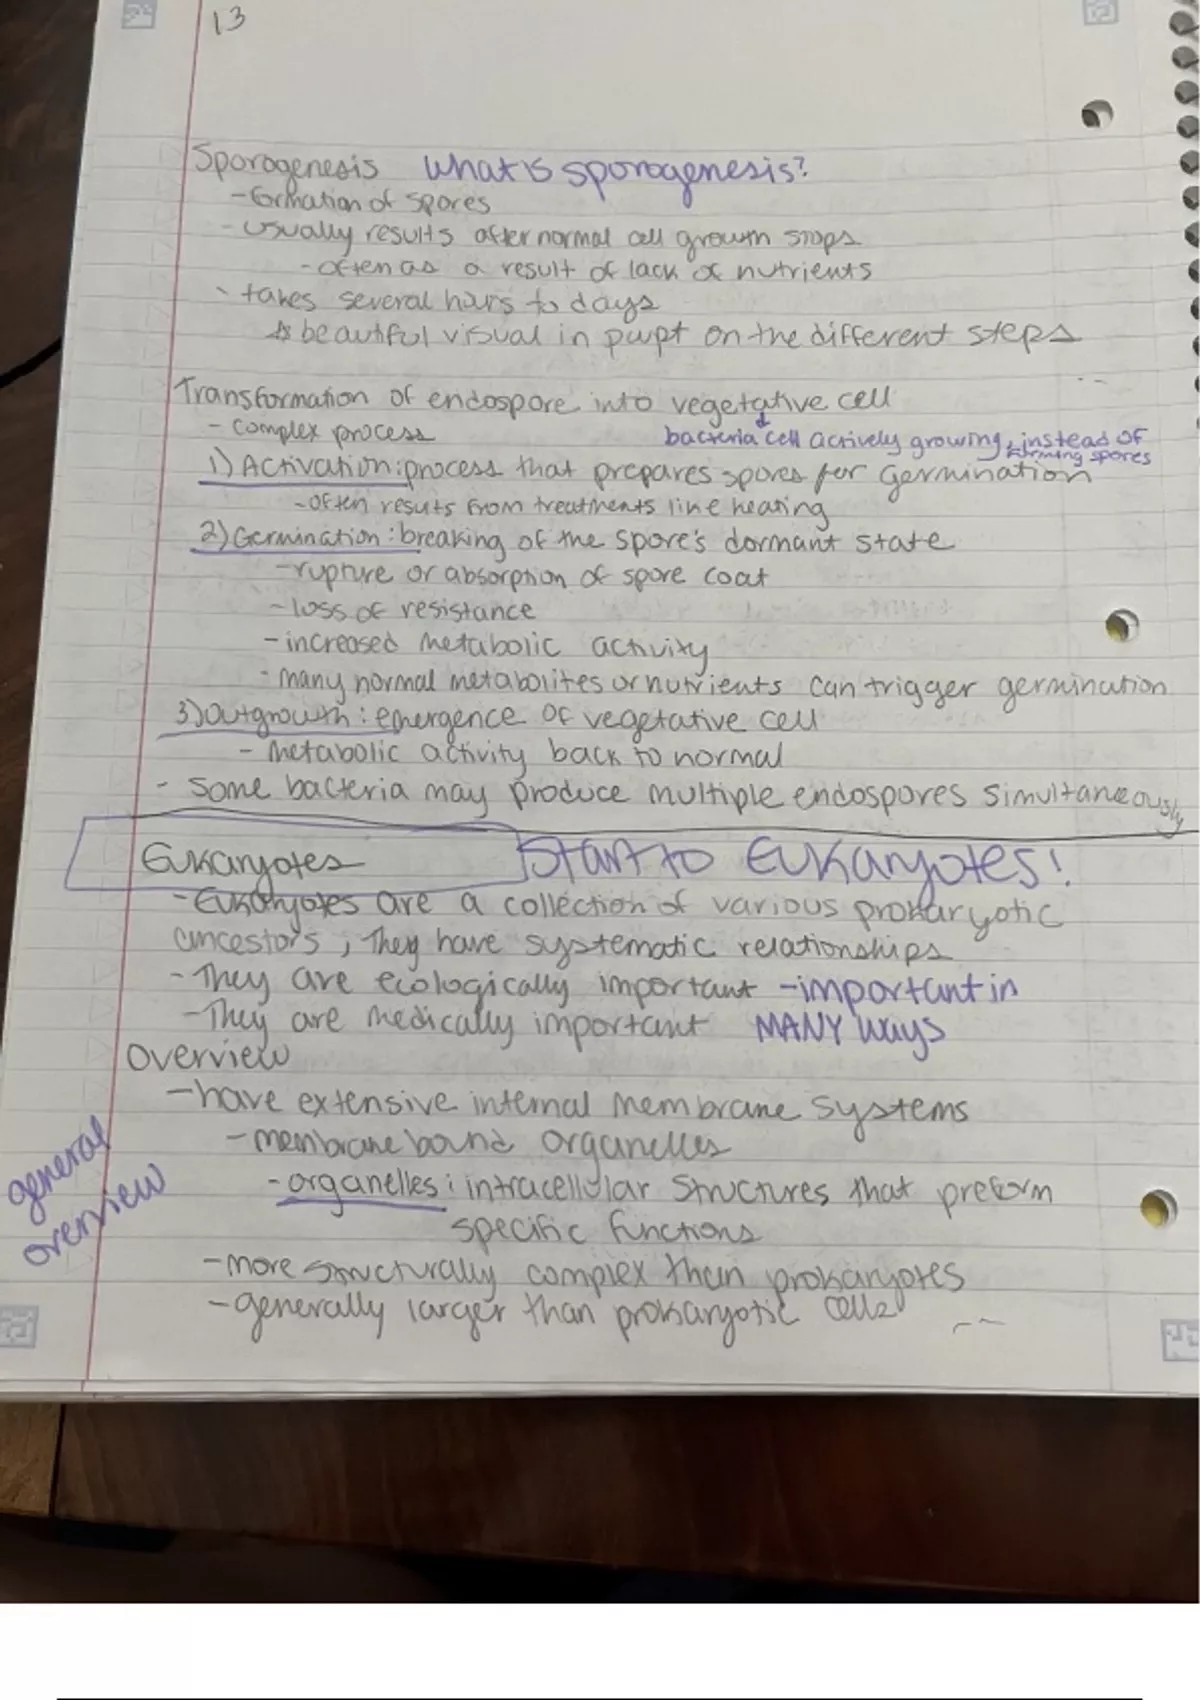 13
Sporogenesis What is sporogenesis?
-formation of spores
-usually results after normal cell growth stops
-often as a result of lack of nutrients
-takes several hours to days
beautiful visual in pwpt on the different steps
Transformation of endospore into vegetative cell
-complex process
bacteria cell actively growing, instead of
forming spores
1) Activation: process that prepares spores for germination
-often results from treatments like heating
2) Germination: breaking of the spore's dormant state
-rupture or absorption of spore coat
-loss of resistance
-increased metabolic activity
-many normal metabolites or nutrients can trigger germination
3) Outgrowth: emergence of vegetative cell
-metabolic activity back to normal
-some bacteria may produce multiple endospores simultaneously
Eukaryotes Start to Eukaryotes!
-Eukaryotes are a collection of various prokaryotic
ancestors, They have systematic relationships
-They are ecologically important -important in
-They are medically important MANY ways
Overview
-have extensive internal membrane systems
-membrane bound organelles
general
overview
-organelles: intracellular structures that preform
specific functions
-more structurally complex than prokaryotes
-generally larger than prokaryotic cells